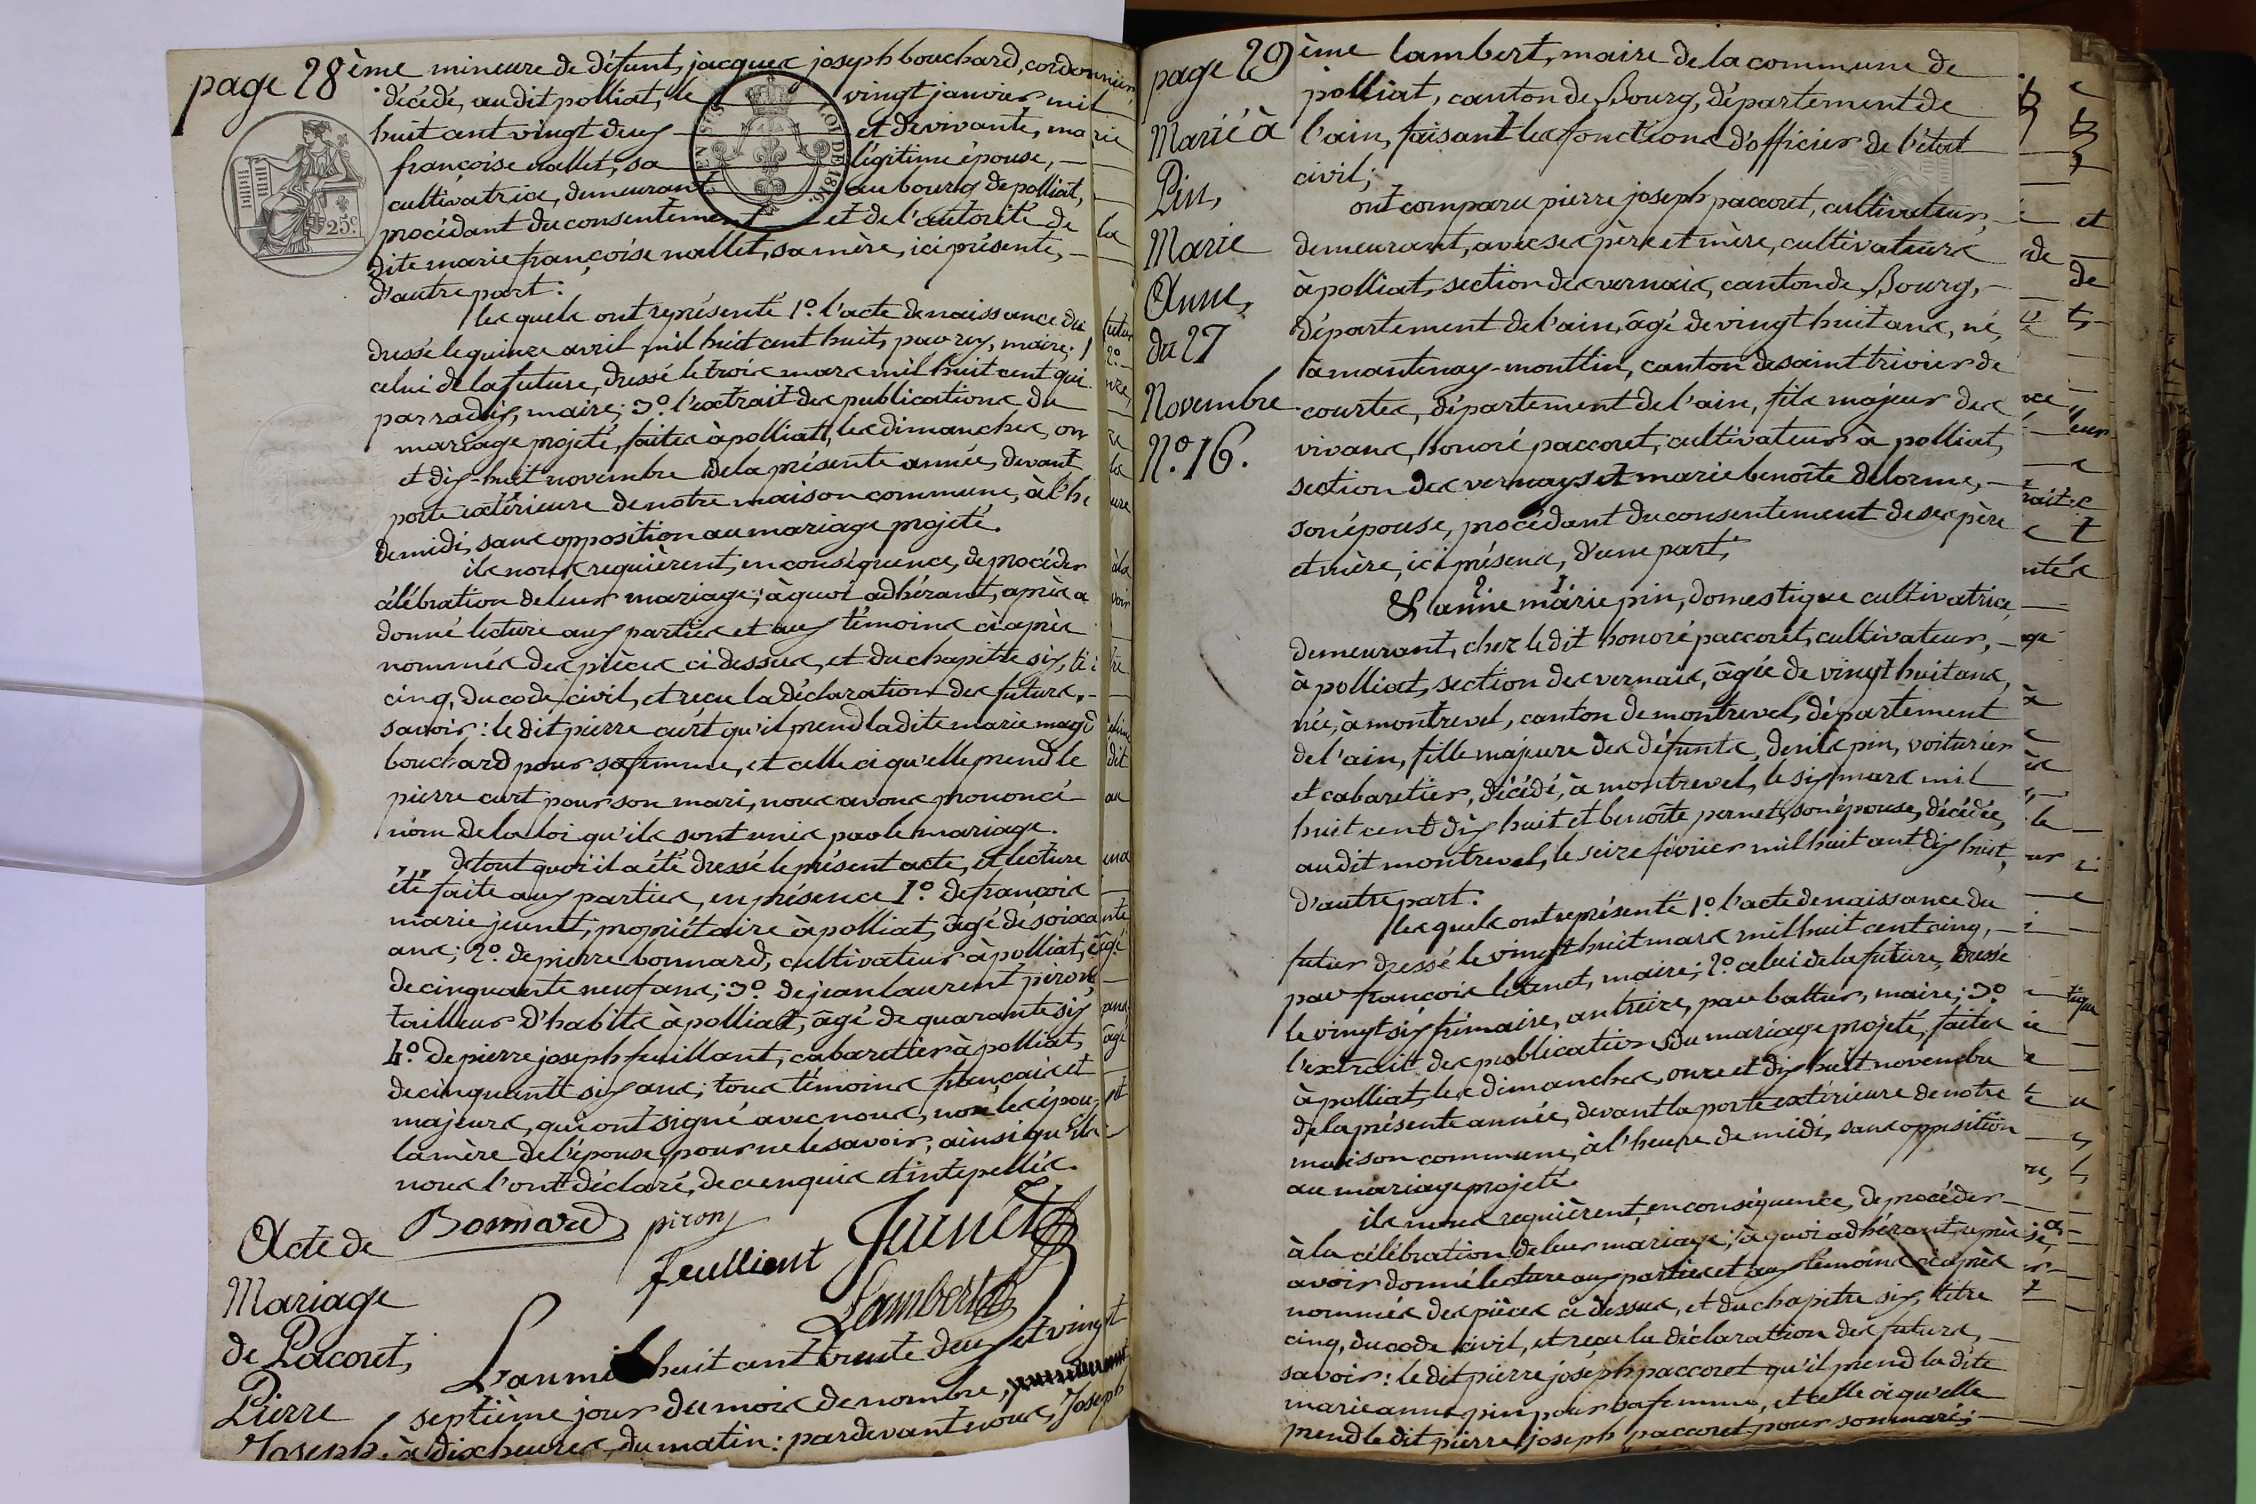 page 28 ème mineure de défunt, jacques joseph bouchard, cordonnier,
décédé, au dit polliat, le vingt janvier mil
huit cent vingt deux et de vivante, marie
françoise nallet, sa légitime épouse, —
cultivatrice, demeurant au bourg de polliat,
procédant du consentement et de l'autorité de la
dite marie françoise nallet, sa mère, ici présente, —
d'autre part:
les quels ont représenté 1.o l'acte de naissance du futur
dressé le quinze avril mil huit cent huit, par rey, maire; 2.o
celui de la future, dressé le trois mars mil huit cent quinze,
par radix, maire; 3.o l'extrait des publications du
mariage projeté, faites à polliat, les dimanches, onze
et dix-huit novembre de la présente année, devant la
porte extérieure de notre maison commune, à l'heure
de midi, sans opposition au mariage projeté.
ils nous requièrent, en conséquence, de procéder à la
célébration de leur mariage; à quoi adhérant, après avoir
donné lecture aux parties et aux témoins ci après
nommés des pièces ci dessus, et du chapitre six, titre
cinq, du code civil, et reçu la déclaration des futurs, —
savoir: le dit pierre curt qu'il prend la dite marie
bouchard pour sa femme, et celle ci qu'elle prend le dit
pierre curt pour son mari, nous avons prononcé au
nom de la loi qu'ils sont unis par le mariage.
de tout quoi il a été dressé le présent acte, et lecture en a
été faite aux parties, en présence 1.o de françois
marie jeunet, propriétaire à polliat, âgé de soixante
ans; 2.o de pierre bonnard, cultivateur à polliat, âgé
de cinquante neuf ans; 3.o de jean laurent piron,
tailleur d'habits à polliat, âgé de quarante six ans;
4.o de pierre joseph feuillant, cabaretier à polliat, âgé
de cinquante six ans; tous témoins français et
majeurs, qui ont signé avec nous, non les époux et
la mère de l'épouse, pour ne le savoir, ainsi qu'ils
nous l'ont déclaré, de ce enquis et intepellés.
Bonnard piron Jeunet
feullient
Lambert
Acte de
Mariage
de Pacout,
Pierre
Joseph.
L'an mil huit cent trente deux et vingt
septième jour du mois de nombre,
à dix heures du matin: pardevant nous, Joseph
page 29 ème lambert, maire de la commune de
polliat, canton de Bourg, département de
l'ain, faisant les fonctions d'officier de l'état
civil;
Marié à
Pin,
Marie
Anne,
du 27
Novembre
N.o 16.
ont comparu pierre joseph paccoret, cultivateur, —
demeurant, avec ses père et mère, cultivateurs
à polliat, section des vernais, canton de Bourg, —
département de l'ain, âgé de vingt huit ans, né,
à mantenay-montlin, canton de saint trivier de
courtes, département de l'ain, fils majeur des
vivans, honoré paccoret, cultivateur à polliat,
section des vernays et marie benoîte delorme, —
son épouse, procédant du consentement de ses père
et mère, ici présens, d'une part,
2 1
& anne marie pin, domestique cultivatrice, —
demeurant, chez le dit honoré paccoret, cultivateur, —
à polliat, section des vernais, âgée de vingt huit ans,
née, à montrevel, canton de montrevel, département
de l'ain, fille majeure des défunts, denis pin, voiturier
et cabaretier, décédé, à montrevel, le six mars mil
huit cent dix huit et benoîte pernet, son épouse, décédée,
au dit montrevel, le seize février mil huit cent dix huit,
d'autre part:
les quels ont représenté 1.o l'acte de naissance du
futur dressé le vingt huit mars mil huit cent cinq, —
par françois maire; 2.o celui de la future, dressé
le vingt six frimaire, an treize, par maire; 3.o
l'extrait des publications du mariage projeté, faites
à polliat, les dimanches, onze et dix huit novembre
de la présente année, devant la porte extérieure de notre
maison commune, à l'heure de midi, sans opposition
au mariage projeté.
ils nous requièrent, en conséquence, de procéder —
à la célébration de leur mariage; à quoi adhérant, après
avoir donné lecture aux parties et aux témoins ci après
nommés des pièces ci dessus, et du chapitre six, titre
cinq, du code civil, et reçu la déclaration des futurs, —
savoir: le dit pierre joseph paccoret qu'il prend la dite
marie anne pin pour sa femme, et celle ci qu'elle
prend le dit pierre joseph paccoret pour son mari; —